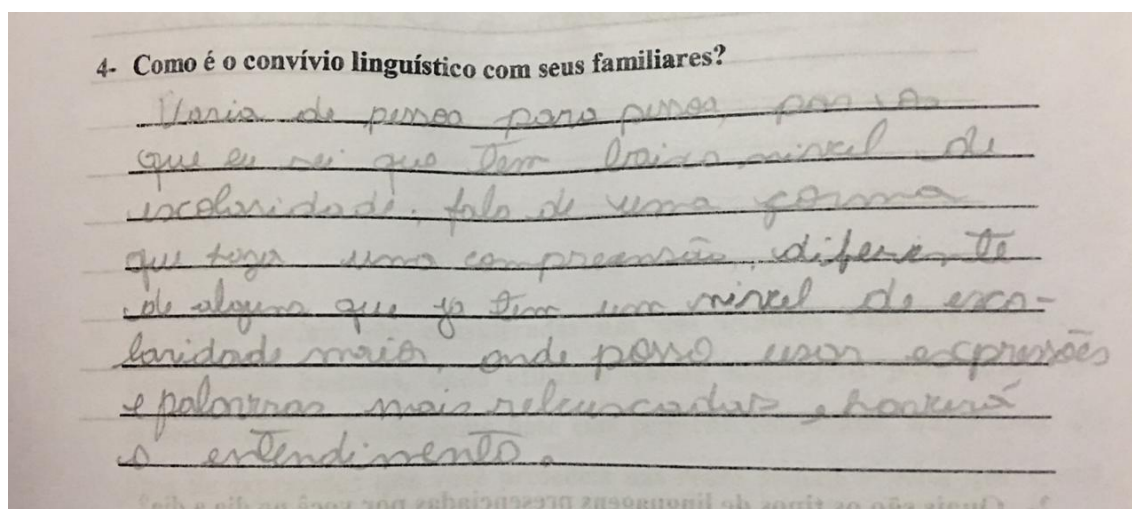 4- Como é o convívio linguístico com seus familiares?
Varia de pessoa para pessoa, por
que eu sei que tem baixo nivel de
escolaridade, falo de uma forma
que haja uma compreensão, diferente
de alguns que já tem um nivel de esco-
laridade maior, onde posso usar expressões
e palavras mais rebuscadas e haverá
o entendimento.